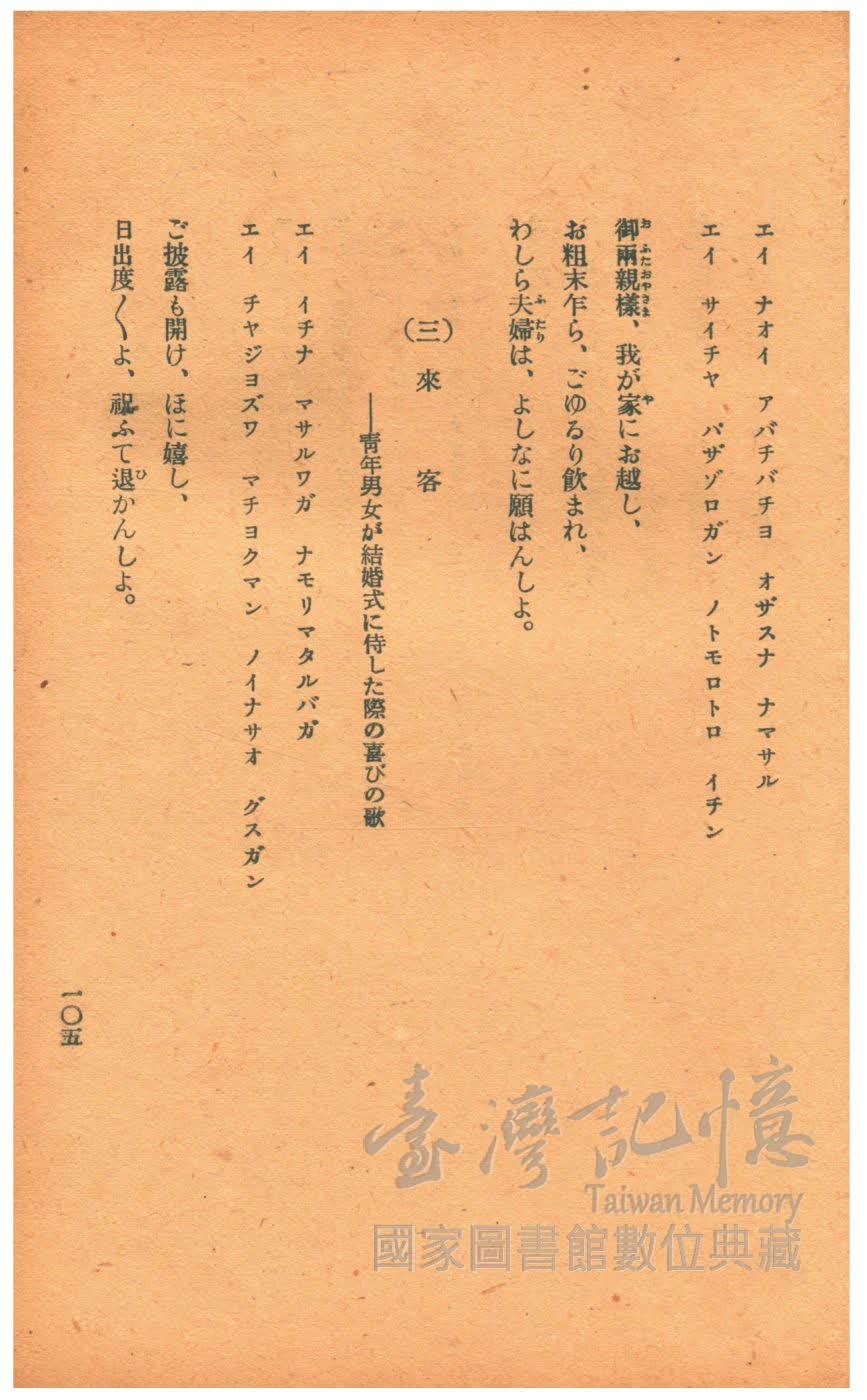 エイ ナオイ アバチバチヨ オザスナ ナマサル
エイ サイチヤ パザゾロガン ノトモロトロ イチン
御兩親樣、我が家にお越し、
お粗末乍ら、ごゆるり飮まれ、
わしら夫婦は、よしなに願はんしよ。
(三) 來客
――靑年男女が結婚式に侍した際の喜びの歌
エイ イチナ マサルワガ ナモリマタルバガ
エイ チヤジヨズワ マチヨクマン ノイナサオ グスガン
ご披露も開け、ほに嬉し、
日出度〱よ、祝ふて退かんしよ。
一〇五
臺灣記憶
Taiwan Memory
國家圖書館數位典藏